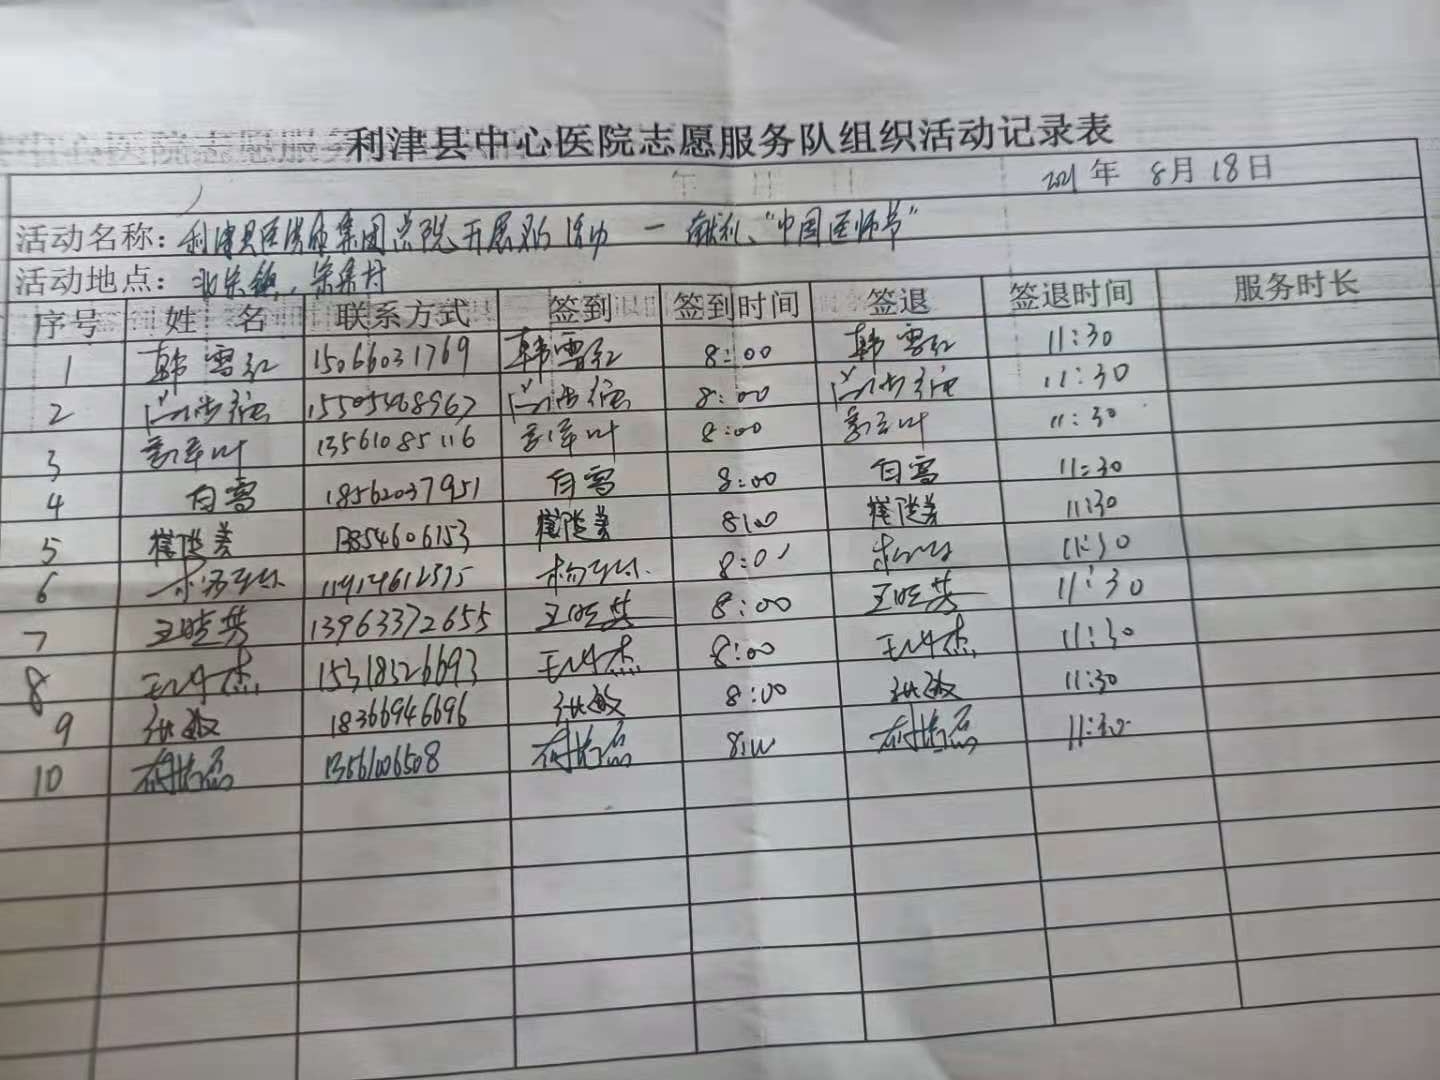 利津县中心医院志愿服务队组织活动记录表
2021年 8月18日
活动名称：利津县医院集团总院开展 活动 一 献礼"中国医师节"
活动地点：北宋镇、宋集村
序号 姓 名 联系方式 签到 签到时间 签退 签退时间 服务时长
1 韩雪红 15066031769 韩雪红 8:00 韩雪红 11:30
2 15505468967 8:00 11:30
3 13561085116 8:00 11:30
4 白雪 18562037951 白雪 8:00 白雪 11:30
5 13854606153 8:00 11:30
6 11:30
7 王晓芸 13963372655 王晓芸 8:00 王晓芸 11:30
8 15318326693 8:00 11:30
9 张敏 18366946696 张敏 8:00 张敏 11:30
10 8:00 11:30